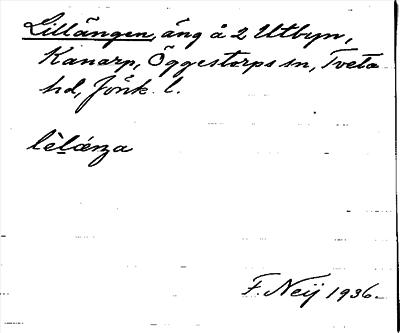 Lillängen, äng å 2 Utbyn,
Kanarp, Öggestorps sn, Tveta
hd, Jönk. l.
lèlænza
F. Neij 1936.